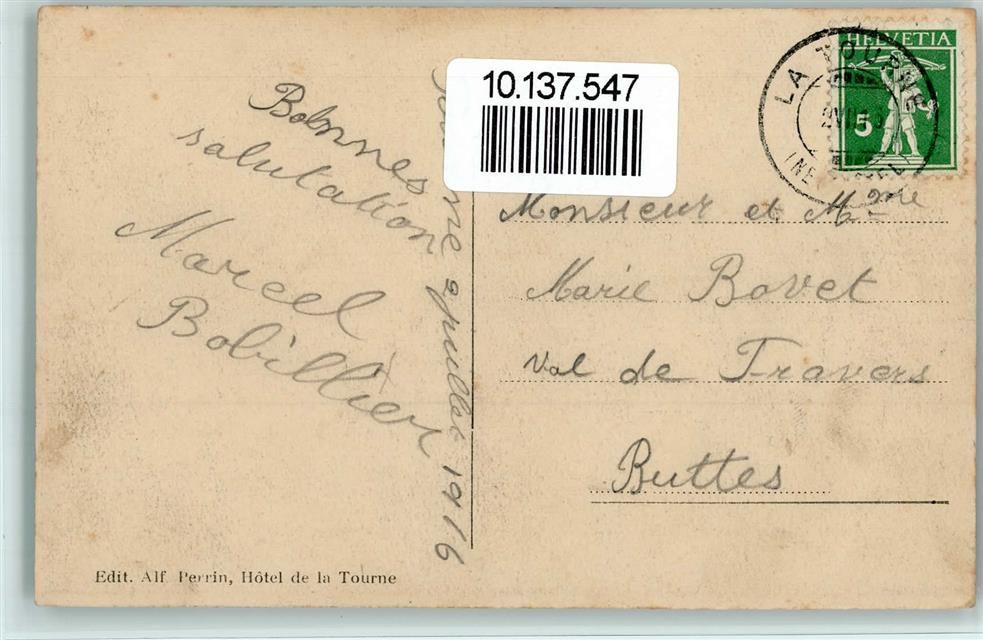 10.137.547
HELVETIA
5
LA TOURNE
Bonnes
salutation
Marcel
Bobillier
juillet 1916
Monsieur et Mme
Marie Bovet
Val de Travers
Buttes
Edit. Alf. Perrin, Hôtel de la Tourne